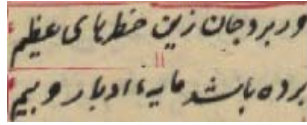 ور برد جان زین خطرهای عظیم
برده باشد مایهٔ ادبار و بیم